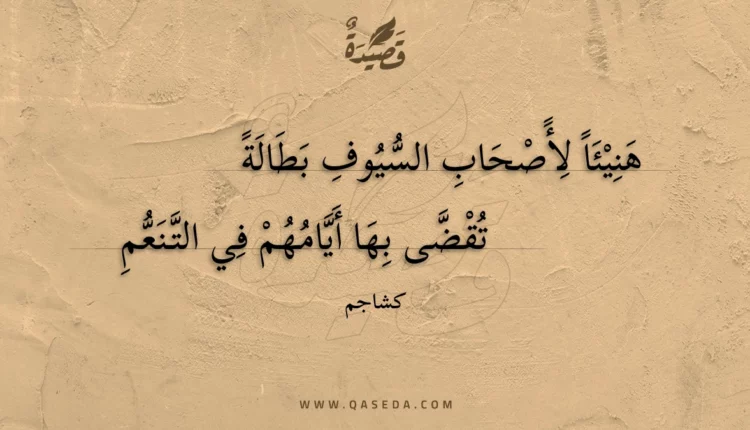 قَصِيْدَةٌ
هَنِيْئَاً لِأََصْحَابِ السُّيُوفِ بَطَالَةً
تُقْضَّى بِهَا أَيَّامُهُمْ فِي التَّنَعُّمِ
كشاجم
WWW.QASEDA.COM